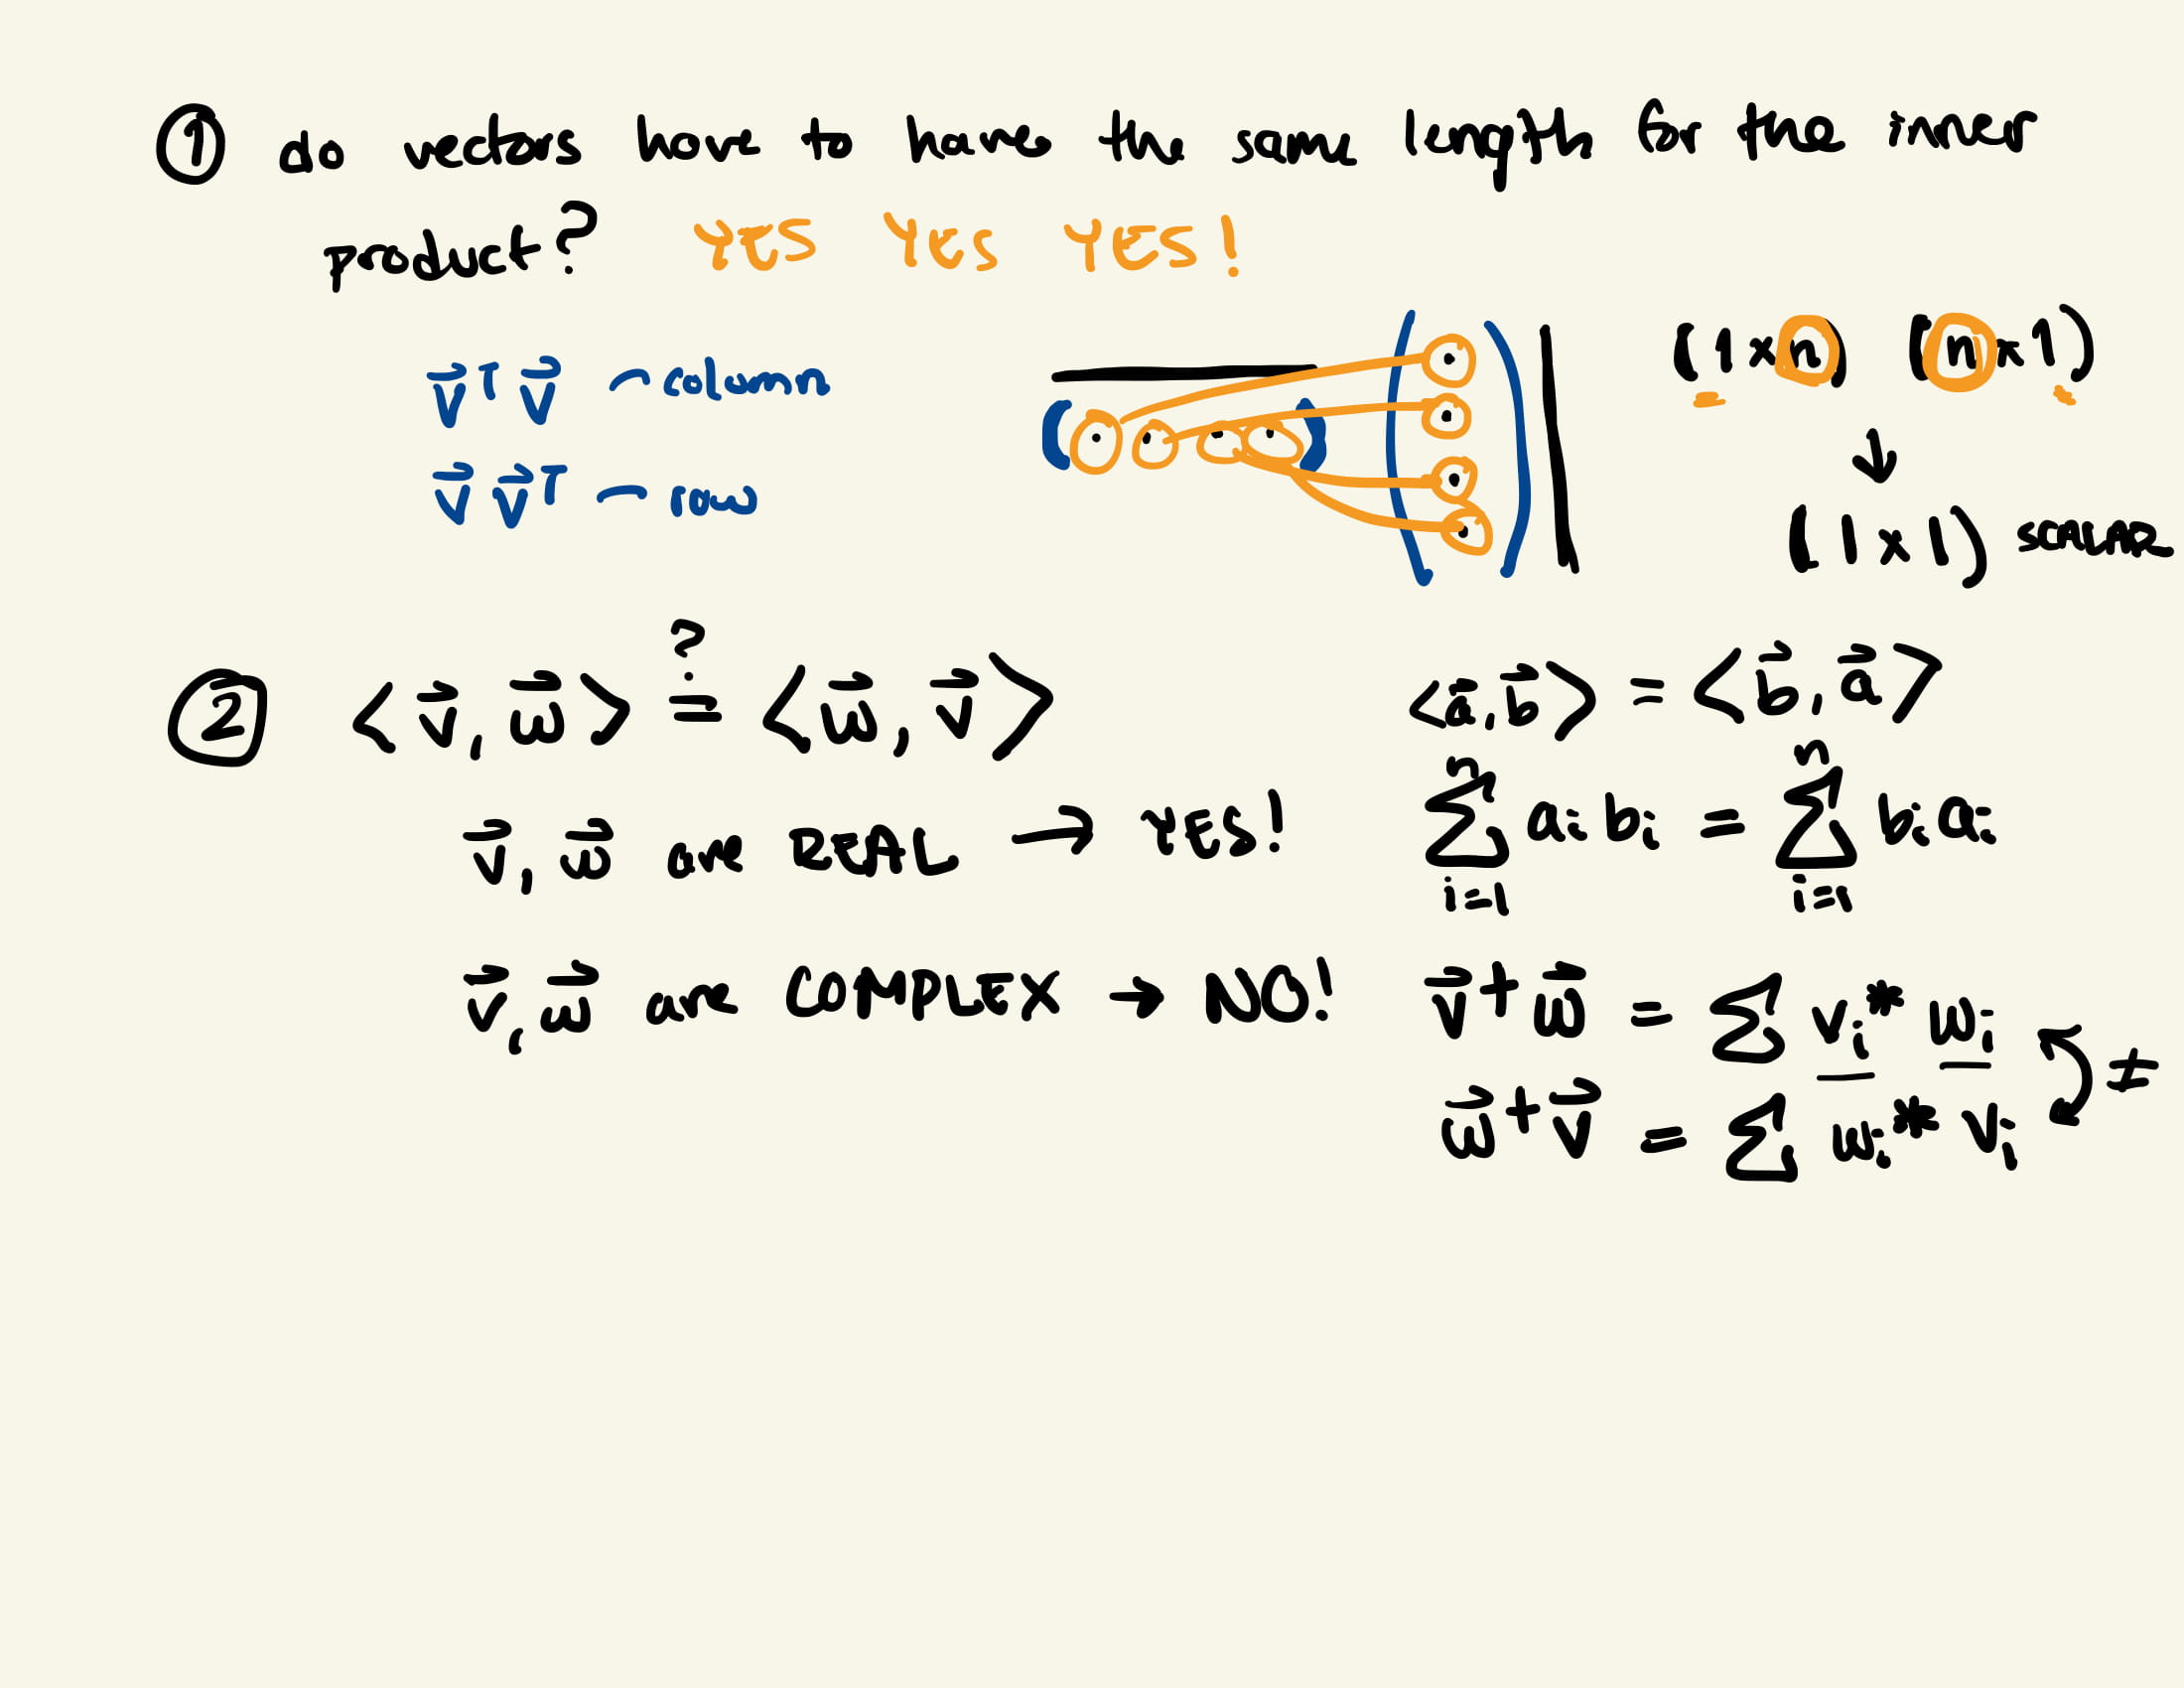 ① do vectors have to have the same length for the inner
product? YES YES YES!
v⃗ᵀ v⃗ ~ column
v⃗ v⃗ᵀ ~ row
(1×n) (n×1)
↓
(1×1) SCALAR
② <v⃗, w⃗> ≟ <w⃗, v⃗>
v⃗, w⃗ are REAL → YES!
v⃗, w⃗ are COMPLEX → NO!
<a⃗, b⃗> = <b⃗, a⃗>
∑ⁿᵢ₌₁ aᵢ bᵢ = ∑ⁿᵢ₌₁ bᵢ aᵢ
v⃗† w⃗ = ∑ vᵢ* wᵢ
≠
w⃗† v⃗ = ∑ wᵢ* vᵢ